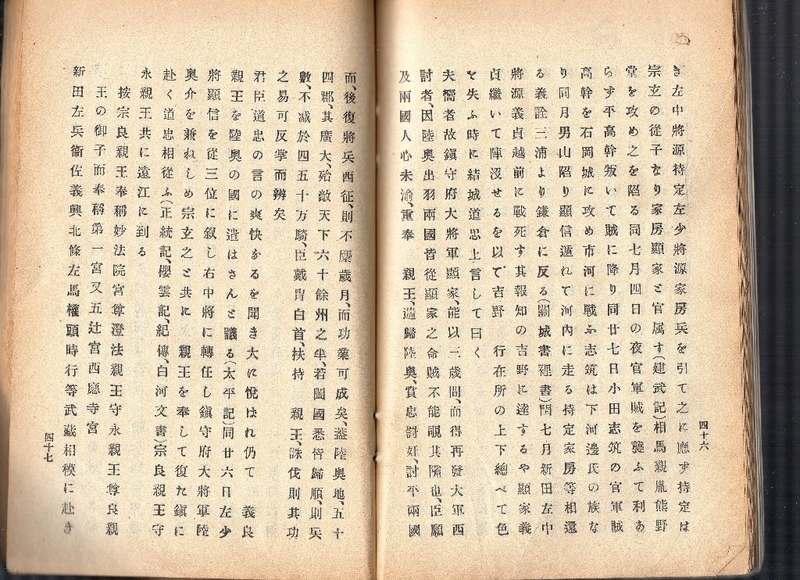 き左中將源持定左少將源家房兵を引て之に應ず持定は
宗玄の從子なり家房顯家と官属す(建武記)相馬親胤熊野
堂を攻め之を陷る同七月四日の夜官軍賊を襲ふて利あ
らず平高幹叛いて賊に降り同廿七日小田志筑の官軍賊
高幹を石岡城に攻め市河に戰ふ志筑は下河邊氏の族な
り同月男山陷り顯信遁れて河內に走る持定家房等相還
る義詮三浦より鎌倉に反る(關城書裡書)閏七月新田左中
將源義貞越前に戰死す其報知の吉野に達するや顯家義
貞繼いて陣沒せるを以て吉野 行在所の上下總べて色
を失ふ時に結城道忠上言して曰く
夫嚮者故鎭守府大將軍顯家、能以三歲間、而得再發大軍西
討者、因陸奧出羽兩國皆從顯家之命賊不能覗其隣也、臣願
及兩國人心未渝、重奉 親王、還歸陸奧、賞忠討奸、討平兩國
四十六
而、後復將兵西征、則不歷歲月、而功業可成矣、蓋陸奧地、五十
四郡、其廣大、殆敵天下六十餘州之半、若闔國悉皆歸順、則兵
數、不减於四五十万騎、臣戴冑白首、扶持 親王、誅伐則其功
之易可反掌而辨矣
君臣道忠の言の爽快なるを聞き大に悅ばれ仍て 義良
親王を陸奧の國に遣はさんと議る(太平記)同廿六日左少
將顯信を從三位に叙し右中將に轉任し鎭守府大將軍陸
奧介を兼ねしめ宗玄之と共に 親王を奉して復た鎭に
赴く道忠相從ふ(正統記、櫻雲記紀傳、白河文書)宗良親王守
永親王共に遠江に到る
按宗良親王奉稱妙法院宮尊澄法親王守永親王尊良親
王の御子而奉稱第一宮又五辻宮西應寺宮
新田左兵衞佐義興北條左馬權頭時行等武藏相模に赴き
四十七